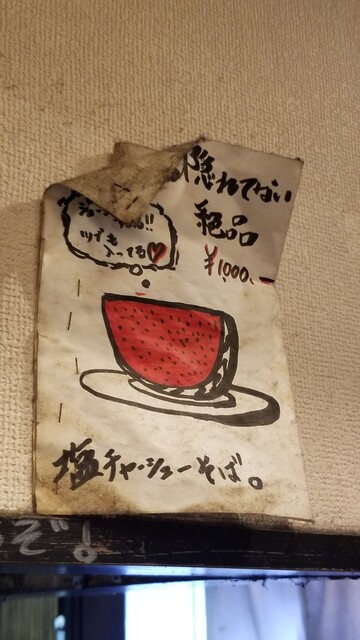 隠れてない
絶品
¥1000.-
ツブも
入ってる♡
塩チャーシューそば。
ぞ!